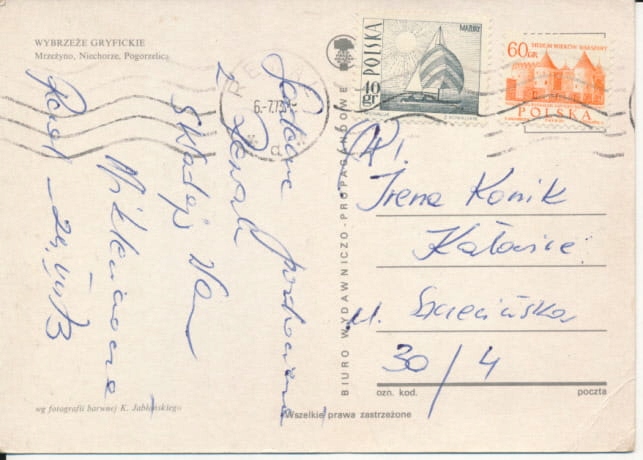 WYBRZEŻE GRYFICKIE
Mrzeżyno, Niechorze, Pogorzelica
Serdeczne pozdrowienia
z Rewala
Wam
wg fotografii barwnej K. Jabłońskiego
BIURO WYDAWNICZO-PROPAGANDOWE
REWAL
6.-7.73
MAZURY
POLSKA
40 gr
SIEDEM WIEKÓW WARSZAWY
60 GR
POLSKA
Irena Konik
Katowice
ul. Szczecińska
30/4
ozn. kod.
poczta
Wszelkie prawa zastrzeżone